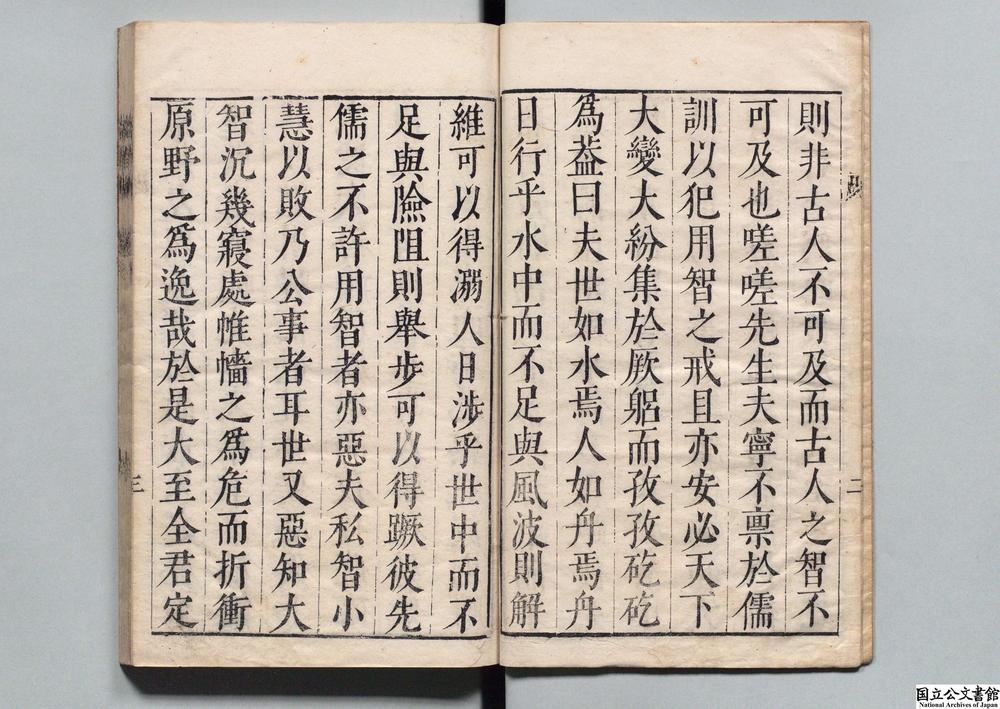 則非古人不可及而古人之智不
可及也嗟嗟先生夫寧不禀於儒
訓以犯用智之戒且亦安必天下
大變大紛集於厥躳而孜孜矻矻
為葢曰夫世如水焉人如舟焉舟
日行乎水中而不足與風波則解
維可以得溺人日涉乎世中而不
足與險阻則舉步可以得蹶彼先
儒之不許用智者亦惡夫私智小
慧以敗乃公事者耳世又惡知大
智沉幾寢處帷幬之爲危而折衝
原野之爲逸哉於是大至全君定
二
三
国立公文書館
National Archives of Japan